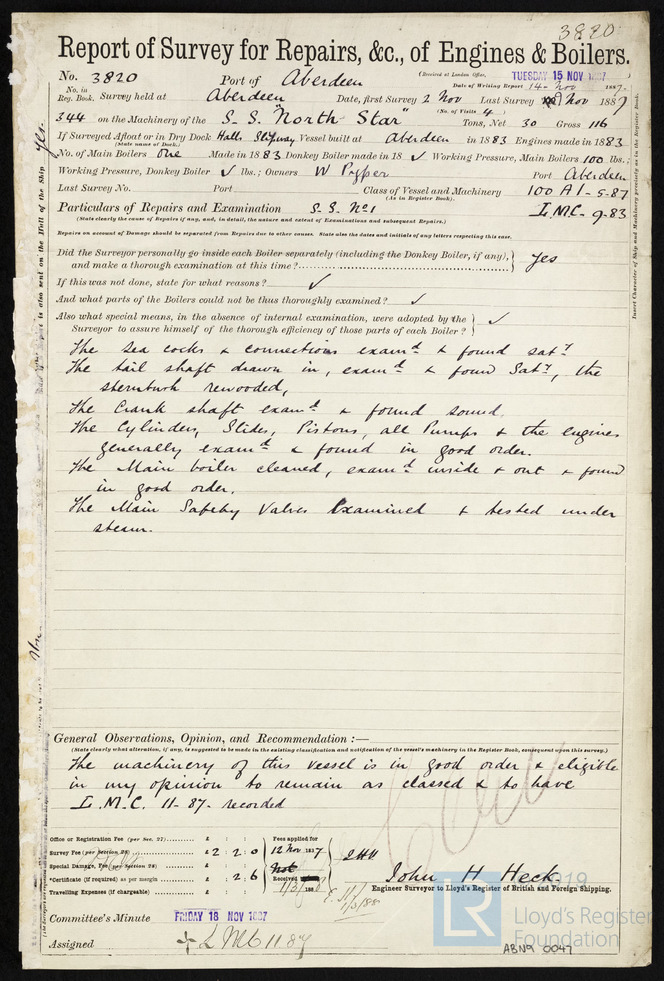 3820
Report of Survey for Repairs, &c., of Engines & Boilers.
(Received at London Office, TUESDAY 15 NOV 1887
No. 3820 Port of Aberdeen
Date of Writing Report 14 Nov 1887.
No. in Reg. Book. Survey held at Aberdeen Date, first Survey 2 Nov Last Survey Nov 1887
(No. of Visits 4)
344 on the Machinery of the S.S. "North Star" Tons, Net 30 Gross 116
If Surveyed Afloat or in Dry Dock Halls Slipway Vessel built at Aberdeen in 1883 Engines made in 1883
(State name of Dock.)
No. of Main Boilers One Made in 1883 Donkey Boiler made in 18 ✓ Working Pressure, Main Boilers 100 lbs.;
Working Pressure, Donkey Boiler ✓ lbs.; Owners W Pyper Port Aberdeen
Last Survey No. Port Class of Vessel and Machinery 100 A1 - 5-87
(As in Register Book).
Particulars of Repairs and Examination S.S. No 1 L.M.C. - 9-83
(State clearly the cause of Repairs if any, and, in detail, the nature and extent of Examinations and subsequent Repairs.)
Repairs on account of Damage should be separated from Repairs due to other causes. State also the dates and initials of any letters respecting this case.
Did the Surveyor personally go inside each Boiler separately (including the Donkey Boiler, if any),
and make a thorough examination at this time? Yes
If this was not done, state for what reasons? ✓
And what parts of the Boilers could not be thus thoroughly examined? ✓
Also what special means, in the absence of internal examination, were adopted by the
Surveyor to assure himself of the thorough efficiency of those parts of each Boiler? ✓
The sea cocks & connections examd & found saty
The tail shaft drawn in, examd & found Saty, the
sternbush rewooded,
The Crank shaft examd & found sound,
The Cylinders, Slides, Pistons, all Pumps & the engines
generally examd & found in good order.
The Main boiler cleaned, examd inside & out & found
in good order.
The Main Safety Valves Examined & tested under
steam.
General Observations, Opinion, and Recommendation :—
(State clearly what alteration, if any, is suggested to be made in the existing classification and notification of the vessel's machinery in the Register Book, consequent upon this survey.)
The machinery of this vessel is in good order & eligible
in my opinion to remain as classed & to have
L.M.C. 11-87 recorded
Office or Registration Fee (per Sec. 27) £ : :
Survey Fee (per Section 28) £ 2 : 2 : 0
Special Damage, Fee (per Section 28) £ : :
*Certificate (if required) as per margin £ : 2 : 6
*Travelling Expenses (if chargeable) £ : :
Fees applied for
12 Nov 1887
Received
John H Heck
Engineer Surveyor to Lloyd's Register of British and Foreign Shipping.
Committee's Minute FRIDAY 18 NOV 1887
Assigned + LMC 11 87
LR
Lloyd's Register
Foundation
ABN9 0047
Insert Character of Ship and Machinery precisely as in the Register Book.
Yes.